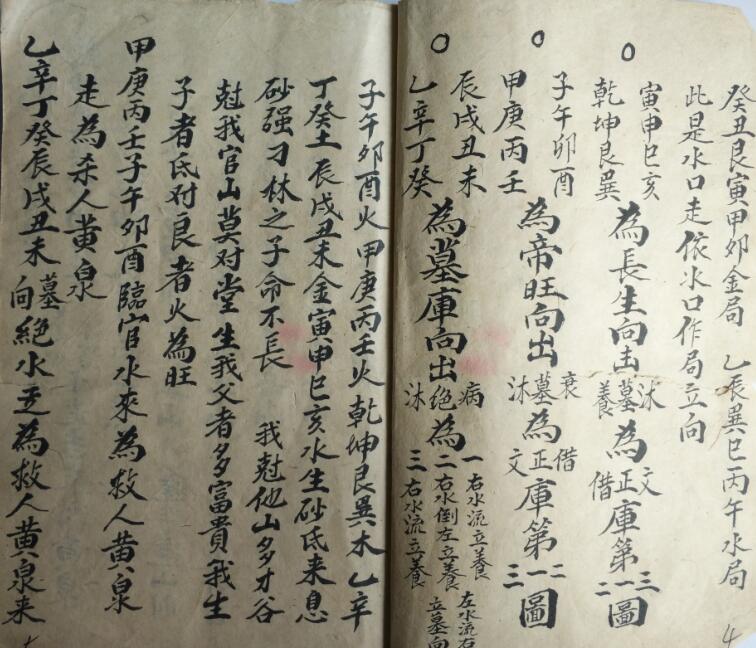 癸丑艮寅甲卯金局 乙辰巽巳丙午水局
此是水口走依水口作局立向
寅申巳亥
乾坤艮巽
為長生向出
沐墓養
為
文正借
庫第
三一二
圖
子午卯酉
甲庚丙壬
為帝旺向出
衰墓沐
為
借正文
庫第
二一三
圖
辰戌丑未
乙辛丁癸
為墓庫向出
病絕沐
為
一右水流立養 左水流右
二右水倒左立養 立墓向
三右水流立養
子午卯酉火甲庚丙壬火乾坤艮巽木乙辛
丁癸土辰戌丑未金寅申巳亥水生砂氐来息
砂强刁林之子命不長 我尅他山多才谷
尅我官山莫对堂生我父者多富貴我生
子者氐对良者火為旺
甲庚丙壬子午卯酉臨官水來為救人黄泉
走為杀人黄泉
乙辛丁癸辰戌丑未墓向絕水走為救人黄泉来
4